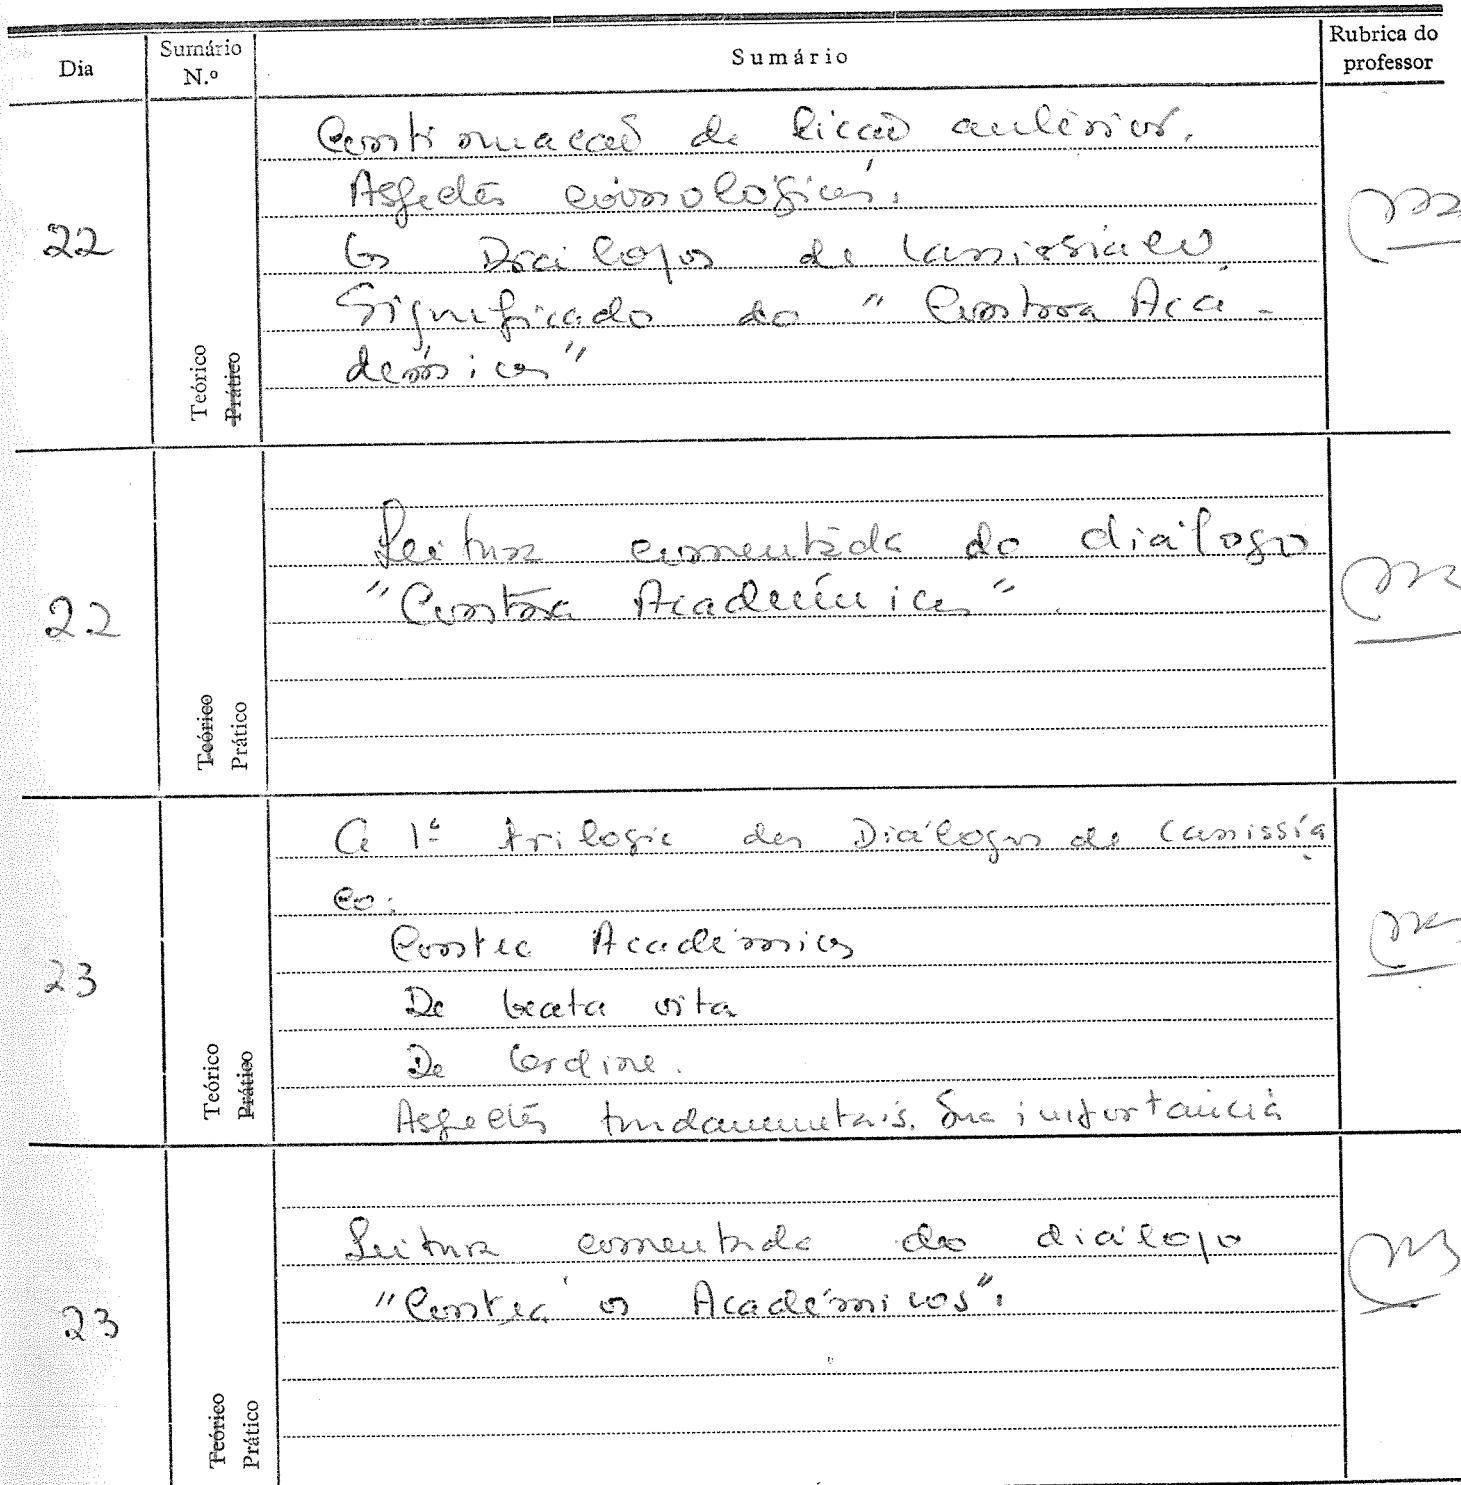 Dia
Sumário N.º
Sumário
Rubrica do professor
22
Teórico
Prático
Continuação da lição anterior.
Aspectos cronológicos.
Os Diálogos de Cassisíaco.
Significado do "Contra Aca-
démicos"
22
Teórico
Prático
Leitura comentada do diálogo
"Contra Académicos".
23
Teórico
Prático
A 1ª trilogia dos Diálogos de Cassissía
co:
Contra Académicos
De beata vita
De Ordine.
Aspectos fundamentais. Sua importância
23
Teórico
Prático
Leitura comentada do diálogo
"Contra os Académicos".